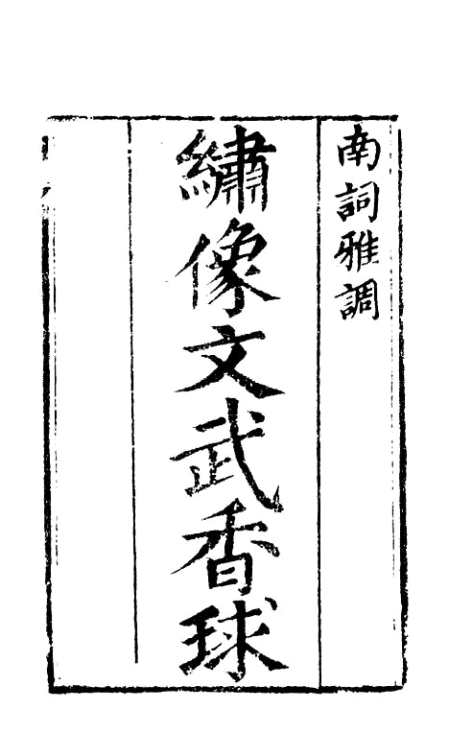 南詞雅調
繡像文武香球